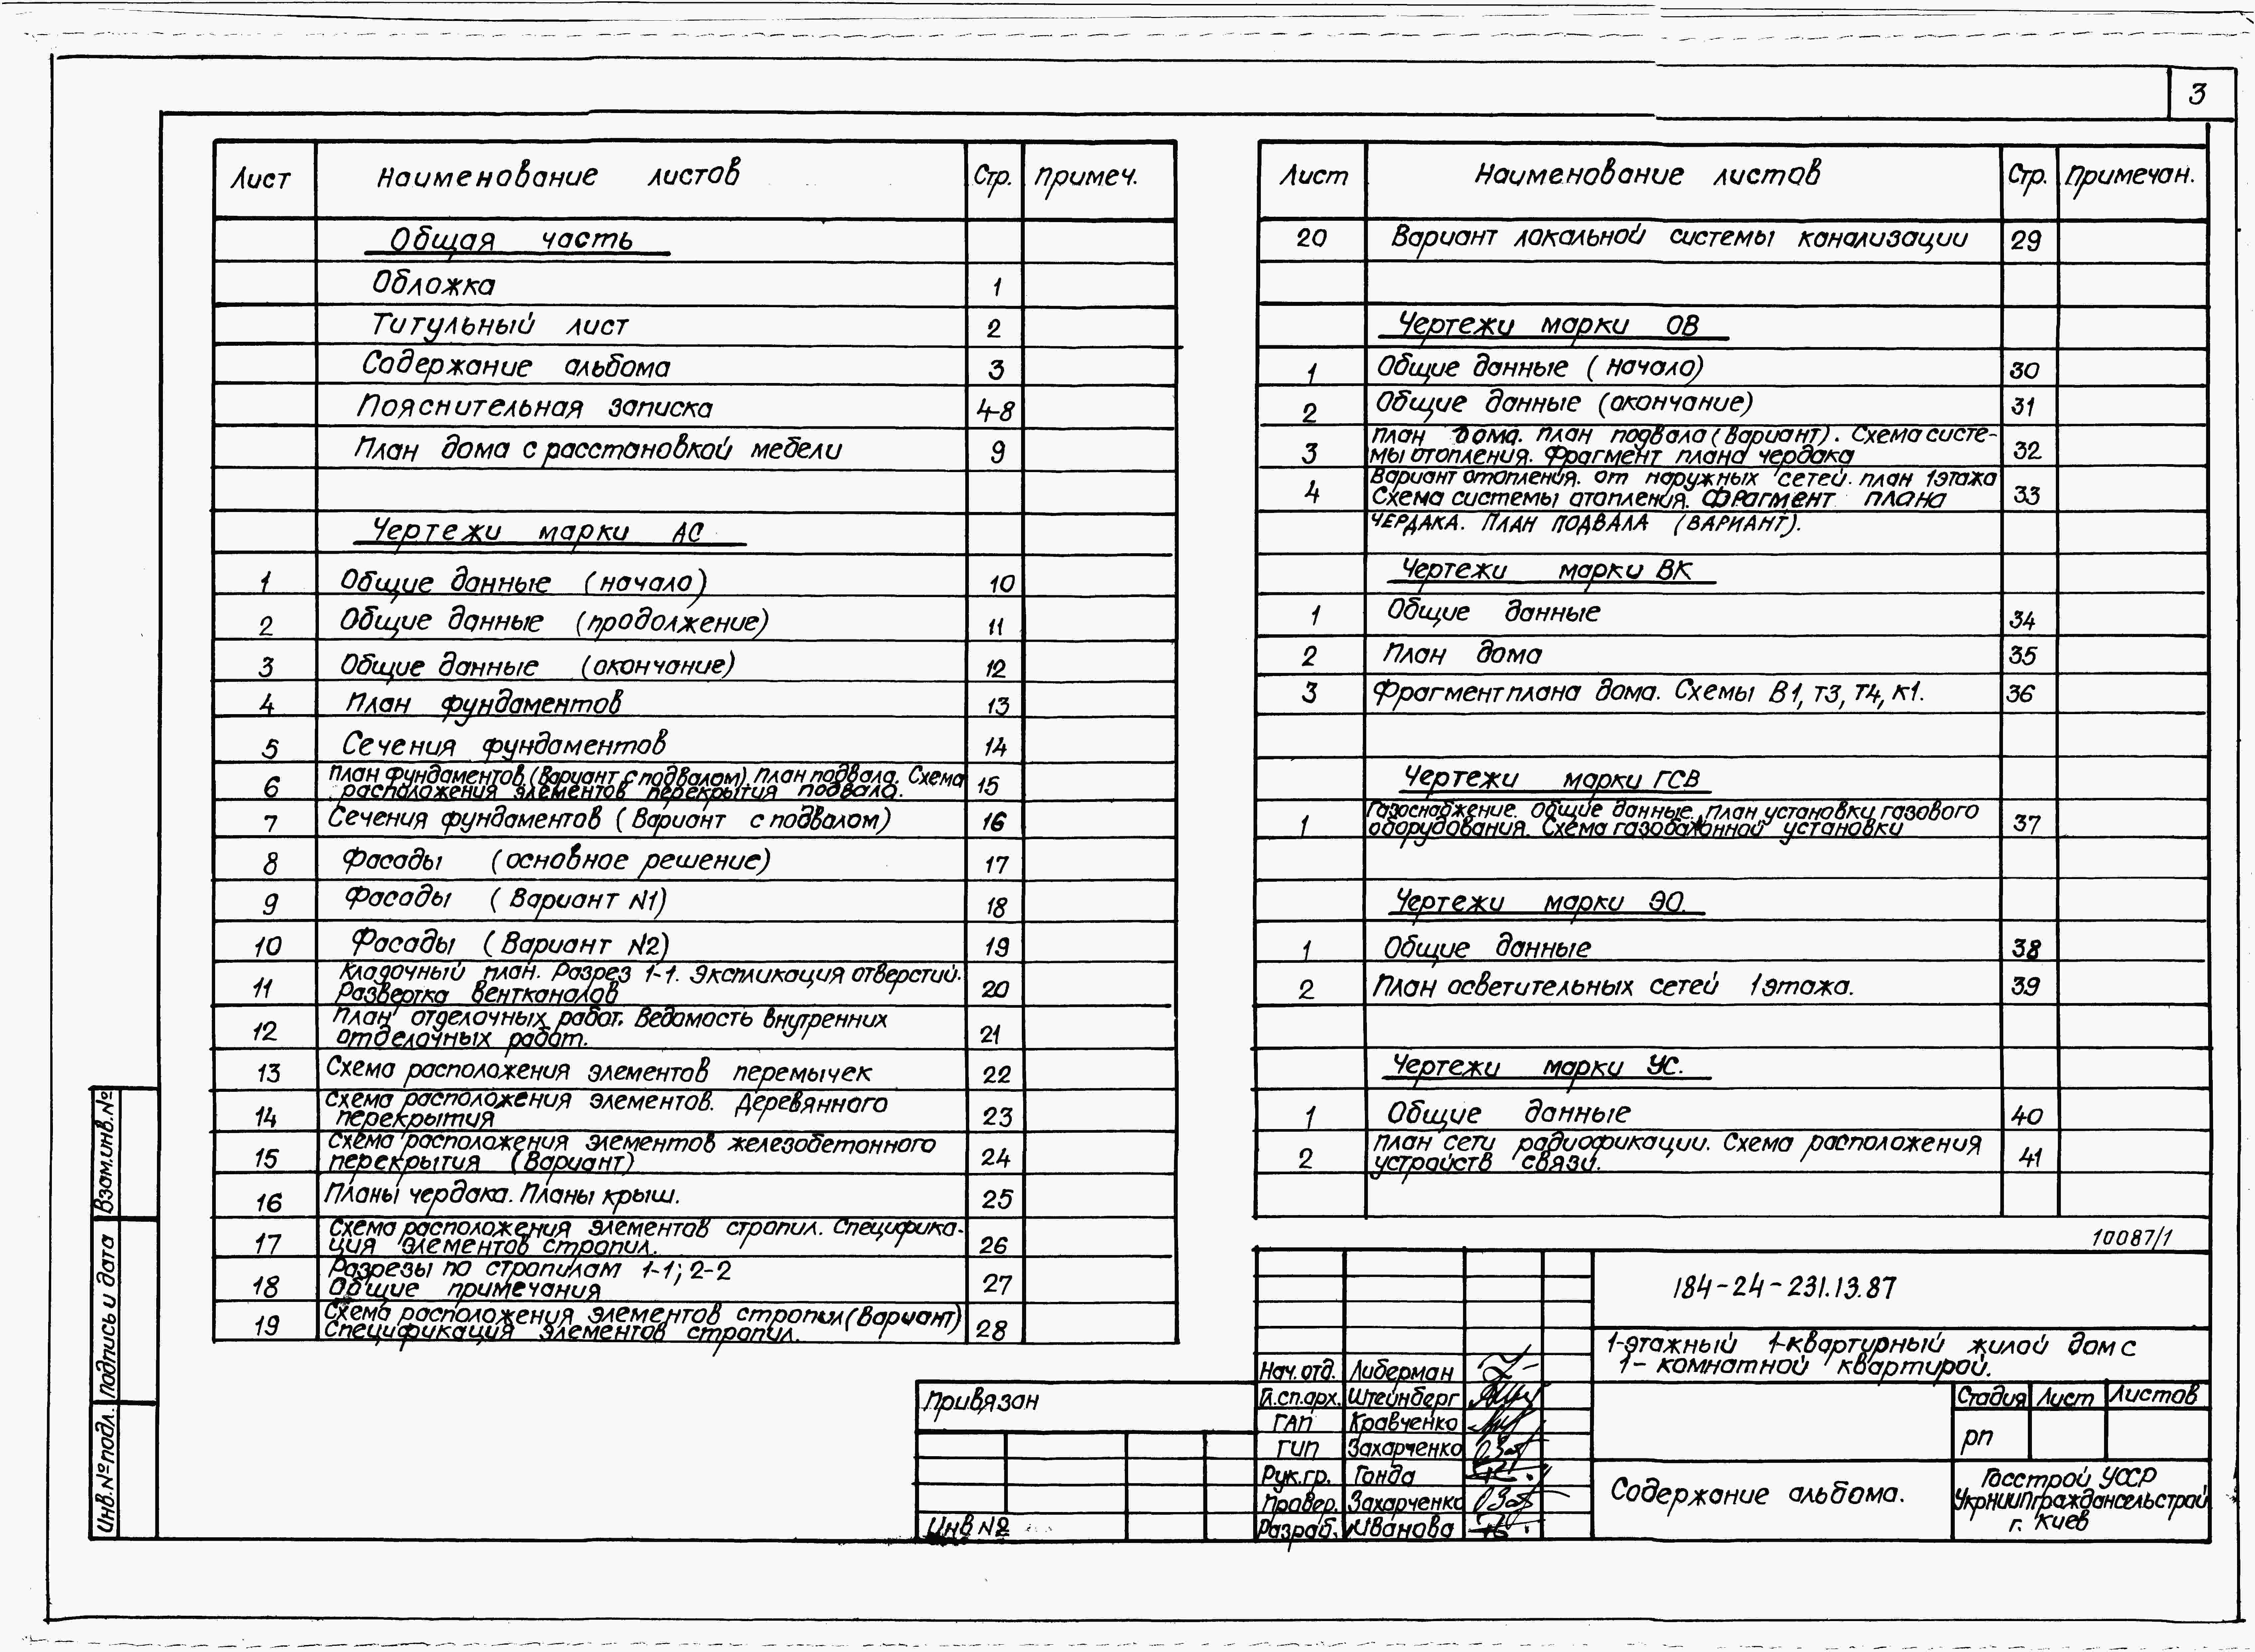 3
Лист Наименование листов Стр. Примеч.
Общая часть
Обложка 1
Титульный лист 2
Содержание альбома 3
Пояснительная записка 4-8
План дома с расстановкой мебели 9
Чертежи марки АС
1 Общие данные (начало) 10
2 Общие данные (продолжение) 11
3 Общие данные (окончание) 12
4 План фундаментов 13
5 Сечения фундаментов 14
6 План фундаментов (Вариант с подвалом). План подвала. Схема
расположения элементов перекрытия подвала. 15
7 Сечения фундаментов (Вариант с подвалом) 16
8 Фасады (основное решение) 17
9 Фасады (Вариант N1) 18
10 Фасады (Вариант N2) 19
11 Кладочный план. Разрез 1-1. Экспликация отверстий.
Развертка вентканалов 20
12 План отделочных работ. Ведомость внутренних
отделочных работ. 21
13 Схема расположения элементов перемычек 22
14 Схема расположения элементов. Деревянного
перекрытия 23
15 Схема расположения элементов железобетонного
перекрытия (Вариант) 24
16 Планы чердака. Планы крыш. 25
17 Схема расположения элементов стропил. Специфика-
ция элементов стропил. 26
18 Разрезы по стропилам 1-1; 2-2
Общие примечания 27
19 Схема расположения элементов стропил (Вариант)
Спецификация элементов стропил. 28
Лист Наименование листов Стр. Примечан.
20 Вариант локальной системы канализации 29
Чертежи марки ОВ
1 Общие данные (начало) 30
2 Общие данные (окончание) 31
3 План дома. План подвала (Вариант). Схема систе-
мы отопления. Фрагмент плана чердака 32
4 Вариант отопления. от наружных сетей. план 1этажа
Схема системы отопления. Фрагмент плана 33
чердака. План подвала (вариант).
Чертежи марки ВК
1 Общие данные 34
2 План дома 35
3 Фрагмент плана дома. Схемы В1, Т3, Т4, К1. 36
Чертежи марки ГСВ
1 Газоснабжение. Общие данные. План установки газового
оборудования. Схема газобаллонной установки 37
Чертежи марки ЭО.
1 Общие данные 38
2 План осветительных сетей 1этажа. 39
Чертежи марки УС.
1 Общие данные 40
2 План сети радиофикации. Схема расположения
устройств связи. 41
10087/1
184-24-231.13.87
1-этажный 1-квартирный жилой дом с
1-комнатной квартирой.
Нач. отд. Либерман
Гл.сп.арх. Штейнберг
ГАП Кравченко
ГИП Захарченко
Рук.гр. Ганда
Провер. Захарченко
Разраб. Иванова
Стадия Лист Листов
РП
Содержание альбома.
Госстрой УССР
УкрНИИПграждансельстрой
г. Киев
Привязан
Инв №
Взам.инв.№
Подпись и дата
Инв.№ подл.